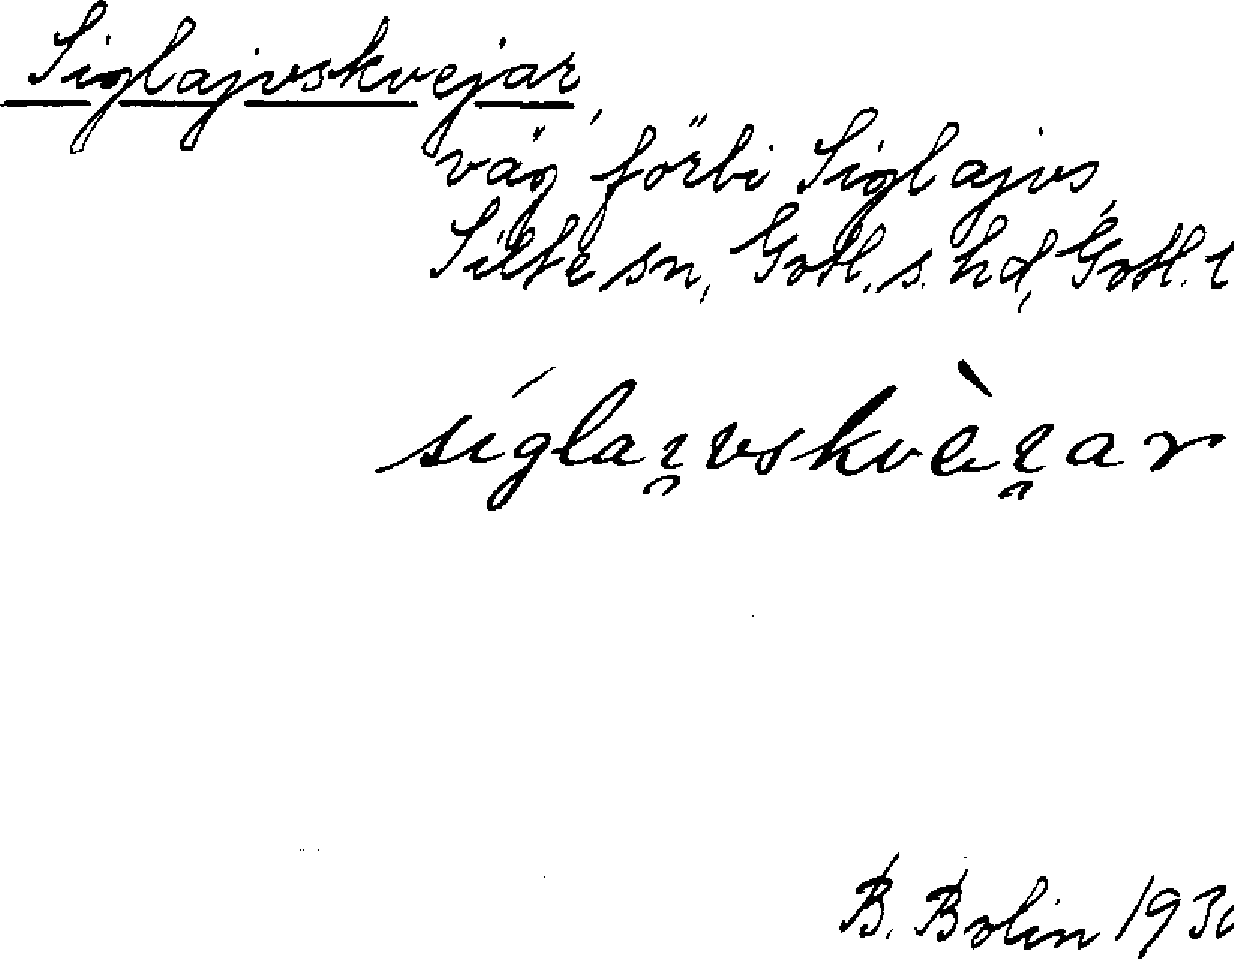 Siglajvskvejar,
väg förbi Siglajvs,
Silte sn, Gotl. s. hd, Gotl. l
síglai̯vskvèi̯ar
B. Bolin 1930